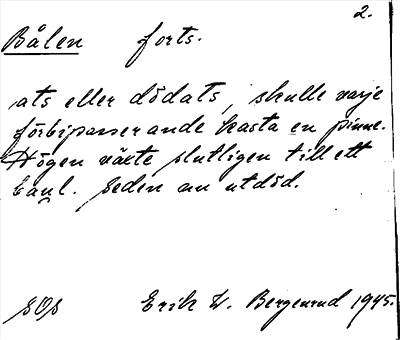 2.
Bålen forts.
ats eller dödats, skulle varje
förbipasserande kasta en pinne.
Högen växte slutligen till ett
bål. Seden nu utdöd.
SOS Erik W. Bergenrud 1945.